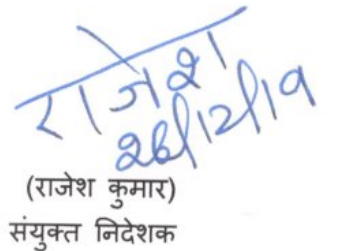 राजेश
26/12/19
(राजेश कुमार)
संयुक्त निदेशक